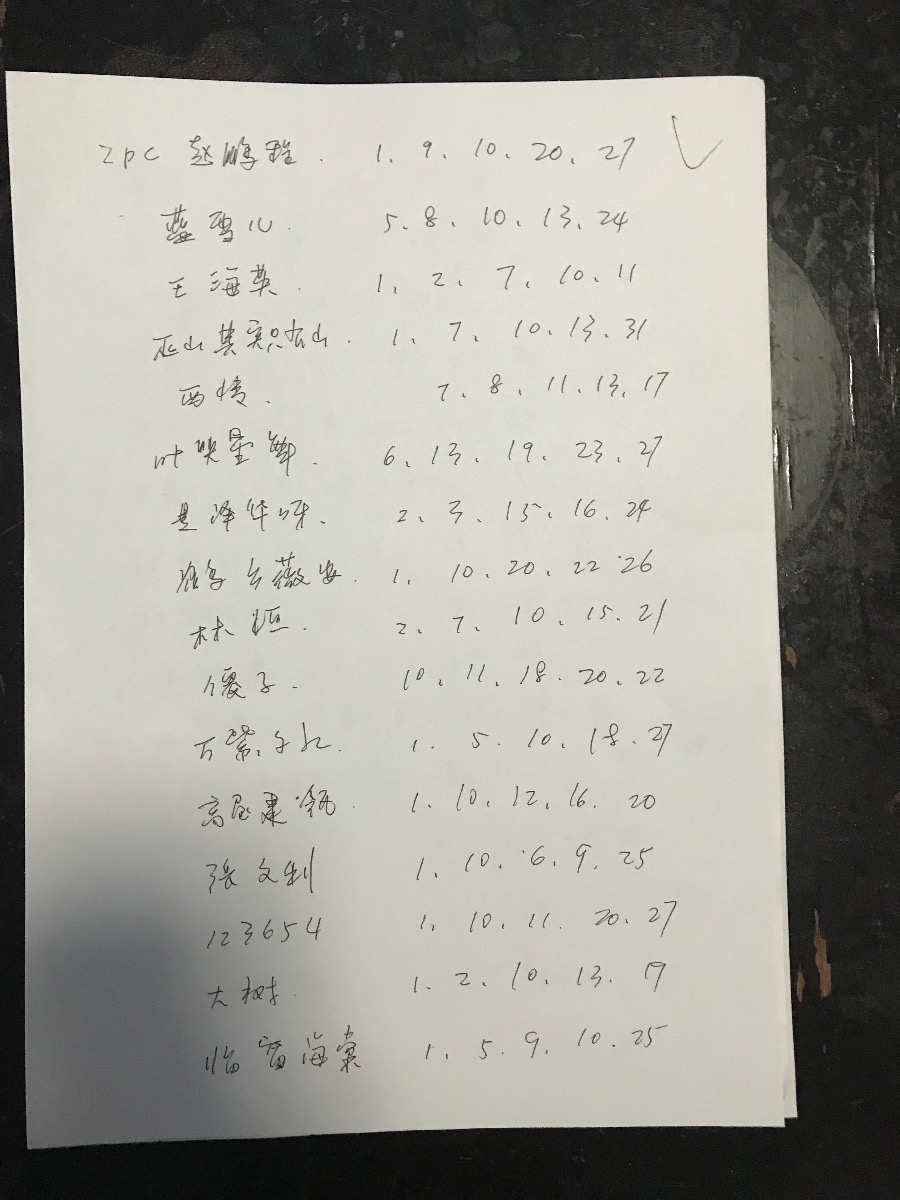 ZPC 赵鹏程. 1. 9. 10. 20. 27
蓝雪儿. 5. 8. 10. 13. 24
王海英. 1. 2. 7. 10. 11
巫山其实只有山. 1. 7. 10. 13. 31
西倩. 7. 8. 11. 13. 17
叶映星. 6. 13. 19. 23. 27
是泽华呀. 2. 3. 15. 16. 24
薇安. 1. 10. 20. 22 26
林恒. 2. 7. 10. 15. 21
傻子. 10. 11. 18. 20. 22
万紫千红. 1. 5. 10. 18. 27
高屋建瓴. 1. 10. 12. 16. 20
张文利 1. 10. 6. 9. 25
123654 1. 10. 11. 20. 27
大树. 1. 2. 10. 13. 19
临窗海棠 1. 5. 9. 10. 25